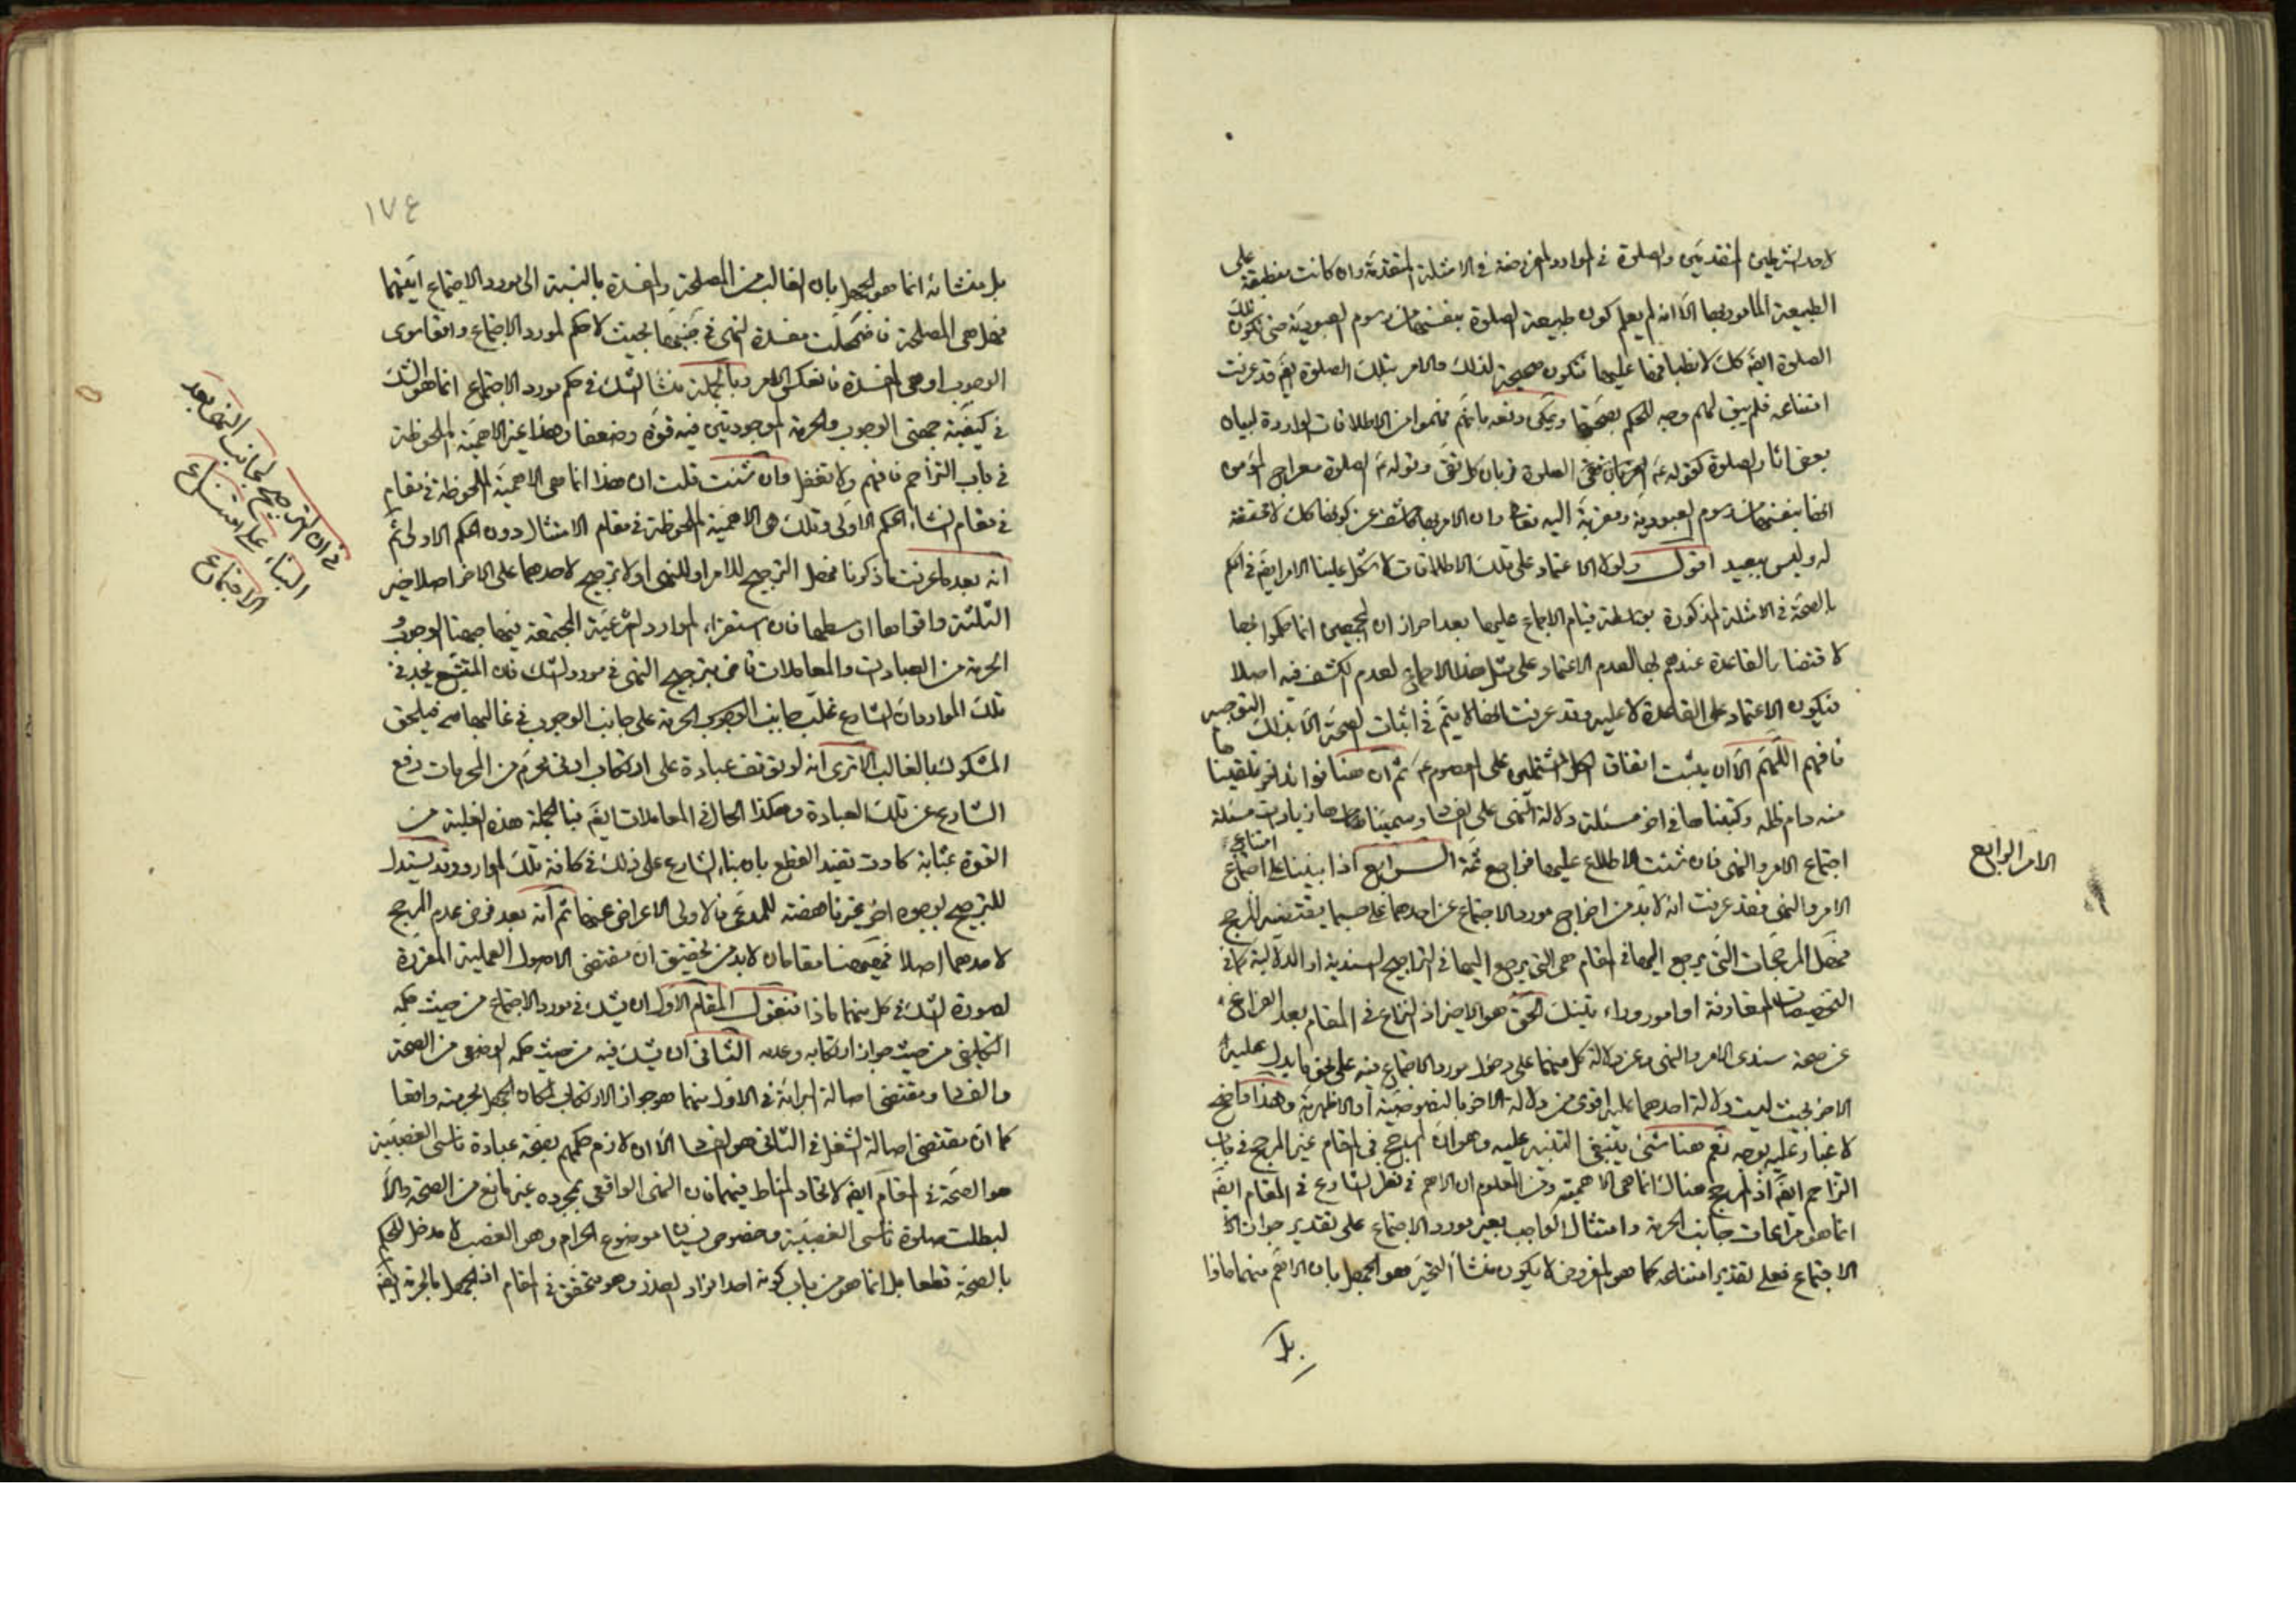 لاحد الشرطين المتقدمين والصلوة في الموارد المفروضة في الامثلة المتقدمة وان كانت منطبقة على
الطبيعة المأمور بها الا انه لم يعلم كون طبيعة الصلوة بنفسها من رسوم العبودية حتى تكون تلك
الصلوة ايضا كك لانطباقها عليها فتكون صحيحة لذلك والامر بتلك الصلوة ايضا قد عرفت
امتناعه فلم يبق لهم وجه للحكم بصحتها ويمكن دفعه بانهم فهموا من الاطلاقات الواردة لبيان
بعض اثار الصلوة كقوله الصلوة قربان كل تقي وقوله الصلوة معراج المؤمن
انها بنفسها من رسوم العبودية ومقربة اليه تعالى وان الامر بها كاشف عن كونها كك لا محققة
له وليس ببعيد اقول ولولا الاعتماد على تلك الاطلاقات لاشكل علينا الامر ايضا في الحكم
بالصحة في الامثلة المذكورة بواسطة قيام الاجماع عليها بعد احراز ان المجمعين انما حكموا بها
لاقتضاء القاعدة عندهم لها لعدم الاعتماد على مثل هذا الاجماع لعدم الكشف فيه اصلا
فيكون الاعتماد على القاعدة لا عليه وقد عرفت انها لا يتم في اثبات الصحة الا بذلك التوجيه
فافهم اللهم الا ان يثبت اتفاق الكل المشتملين على المعصوم ثم ان هنا فوائد اخر تلقيناها
منه دام ظله وكتبناها في اخر مسئلة دلالة النهي على الفساد وسميناها زيادات مسئلة
اجتماع الامر والنهي فان شئت الاطلاع عليها فراجع ثمة الرابع اذا بنينا على امتناع اجتماع
الامر والنهي فقد عرفت انه لا بد من اخراج مورد الاجتماع عن احدهما على حسب ما يقتضيه المرجح
فهل المرجحات التي يرجع اليها في المقام هي التي يرجع اليها في التراجيح السندية او الدلالية كما في
التخصيصات المتعارفة او امور وراء تينك الحق هو الاخير اذ النزاع في المقام بعد الفراغ
عن صحة سندي الامر والنهي وعن دلالة كل منهما على دخول مورد الاجتماع فيه على نحو ما يدل عليه
الاخر بحيث ليست دلالة احدهما عليه اقوى من دلالة الاخر بالنصوصية او الاظهرية وهذا واضح
لا غبار عليه بوجه نعم هنا شئ ينبغي التنبيه عليه وهو ان المرجح في المقام غير المرجح في باب
التزاحم ايضا اذ المرجح هناك انما هي الاهمية ومن المعلوم ان الاهم في نظر الشارع في المقام ايضا
انما هو مراعات جانب الحرمة وامتثال الواجب بغير مورد الاجتماع على تقدير جواز
الاجتماع فعلى تقدير امتناعه كما هو المفروض لا يكون منشأ التحير هو الجهل بان الاهم منهما ماذا
بل
الامر الرابع
١٧٤
بل منشائه انما هو الجهل بان الغالب من المصلحة والمفسدة بالنسبة الى مورد الاجتماع ايتهما
فهل هي المصلحة فاضمحلت مفسدة النهي في جنبها بحيث لا حكم لمورد الاجتماع واقعا سوى
الوجوب او هي المفسدة فانعكس الامر وبالجملة منشأ الشك في حكم مورد الاجتماع انما هو الشك
في كيفية جهتي الوجوب والحرمة الموجودتين فيه قوة وضعفا وهذا غير الاهمية الملحوظة
في باب التزاحم فافهم ولا تغفل وان شئت قلت ان هذا انما هي الاهمية الملحوظة في مقام
في مقام انشاء الحكم الاولى وتلك هي الاهمية الملحوظة في مقام الامتثال دون الحكم الاولى ثم
انه بعد ما عرفت ما ذكرنا فهل الترجيح للامر او للنهي او لا ترجيح لاحدهما على الاخر اصلا خير
الثلثة واقواها اوسطها فان استقراء الموارد الشرعية المجتمعة فيها جهتا الوجوب
الحرمة من العبادات والمعاملات قاض بترجيح النهي في مورد الشك فان المتتبع يجد في
تلك الموارد ان الشارع غلب جانب الحرمة على جانب الوجوب في غالبها فيلحق
المشكوك بالغالب الا ترى انه لو توقف عبادة على ارتكاب ادنى محرم من المحرمات رفع
الشارع عن تلك العبادة وهكذا الحال في المعاملات ايضا فبالجملة هذه الغلبة من
القوة بمثابة كادت تفيد القطع بان بناء الشارع على ذلك في كافة تلك الموارد وقد يستدل
للترجيح بوجوه اخر غير ناهضة للمدعى فالاولى الاعراض عنها ثم انه بعد فرض عدم المرجح
لاحدهما اصلا فهيهنا مقامان لا بد من تحقيق ان مقتضى الاصول العملية المقررة
لصورة الشك في كل منهما ماذا فنقول المقام الاول ان يشك في مورد الاجتماع من حيث حكمه
التكليفي من حيث جواز ارتكابه وعدمه الثاني ان يشك فيه من حيث حكمه الوضعي من الصحة
والفساد ومقتضى اصالة البرائة في الاول منهما هو جواز الارتكاب لمكان الجهل بحرمته واقعا
كما ان مقتضى اصالة الشغل في الثاني هو الفساد الا ان لازم حكمهم بصحة عبادة ناسي الغصبية
هو الصحة في المقام ايضا لاتحاد المناط فيهما فان النهي الواقعي بمجرده غير مانع من الصحة والا
لبطلت صلوة ناسي الغصبية وخصوص نسيان موضوع الحرام وهو الغصب لا مدخل له في الحكم
بالصحة قطعا بل انما هو من باب كونه احد افراد العذر وهو متحقق في المقام اذ الجهل بالحرمة ايضا
في ان الترجيح لجانب النهي بعد
البناء على امتناع
الاجتماع